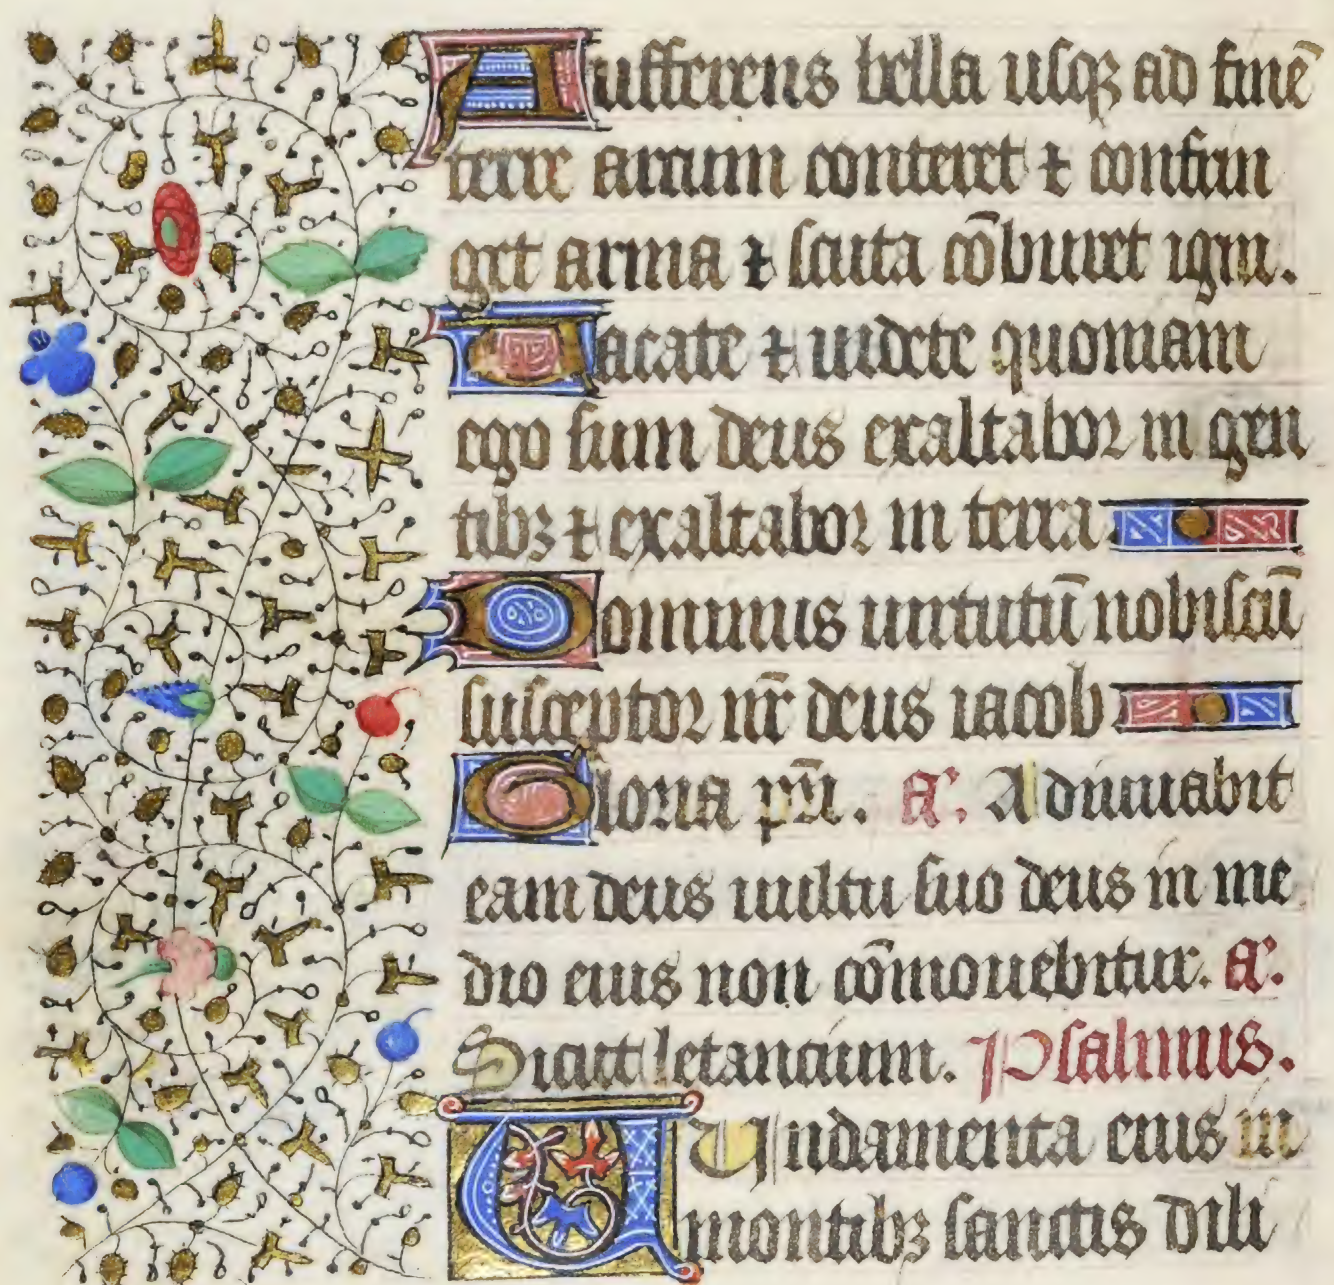 Aufferens bella usqꝫ ad finē
terre arcum conteret ⁊ confrin
get arma ⁊ scuta cōburet igni.
Vacate ⁊ uidete quoniam
ego sum deus exaltabor in gen
tibꝫ ⁊ exaltabor in terra
Dominus uirtutū nobiscū
susceptor nr̄ deus iacob
Gloria pr̄i. a᷎. Adiuuabit
eam deus uultu suo deus in me
dio eius non cōmouebitur. a᷎.
Sicut letancium. Psalmus.
Undamenta eius in
montibꝫ sanctis dili